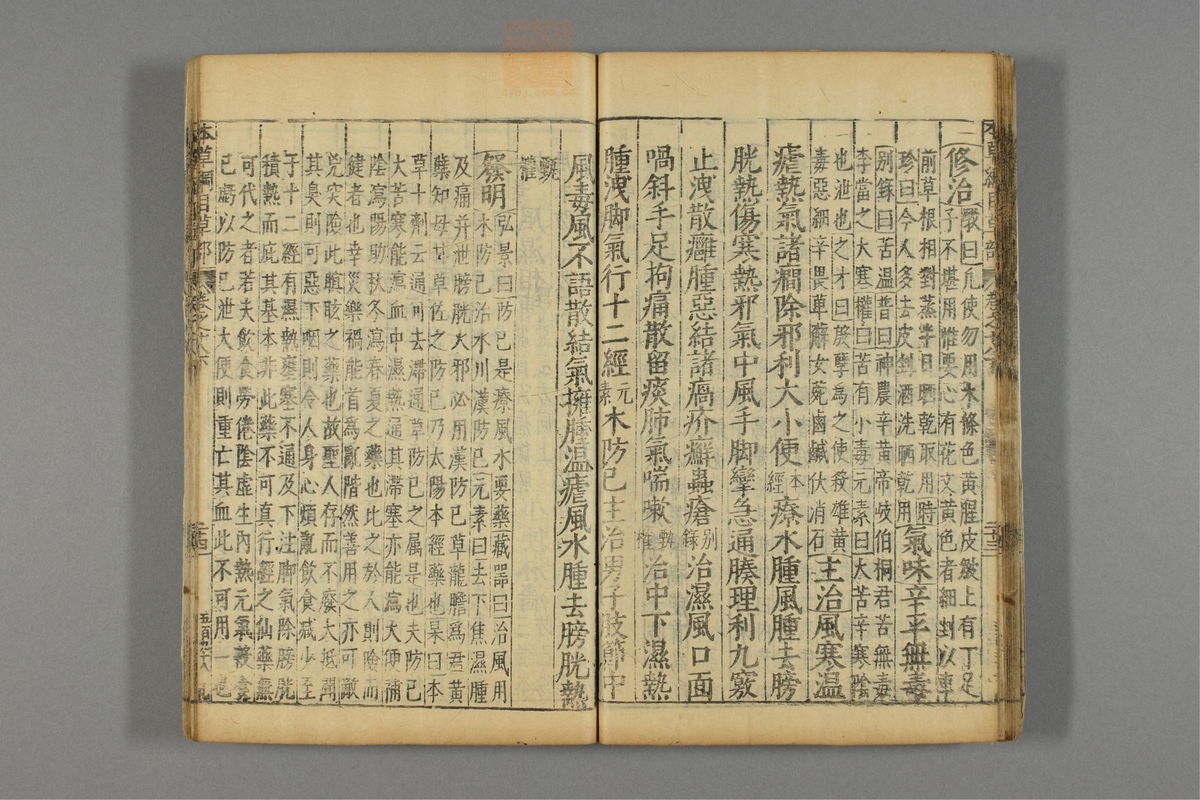 本草綱目草部 二十三
修治 斆曰凡使勿用木條色黃腥皮皺上有丁足
子不堪用惟要心有花文黃色者細剉以車
前草根相對蒸半日晒乾取用時
珍曰今人多去皮剉酒洗晒乾用 氣味辛平無毒
別錄曰苦温普曰神農辛黃帝岐伯桐君苦無毒
李當之大寒權曰苦有小毒元素曰大苦辛寒陰
也泄也之才曰殷孽爲之使殺雄黃
毒惡細辛畏萆薢女菀鹵鹹伏消石 主治風寒温
瘧熱氣諸癇除邪利大小便本經療水腫風腫去膀
胱熱傷寒熱邪氣中風手脚攣急通腠理利九竅
止洩散癰腫惡結諸瘑疥癬蟲瘡別錄治濕風口面
喎斜手足拘痛散留痰肺氣喘嗽甄權治中下濕熱
腫洩脚氣行十二經元素木防已主治男子肢節中
風毒風不語散結氣擁腫温瘧風水腫去膀胱熱
甄權
發明 弘景曰防已是療風水要藥藏器曰治風用
木防已治水用漢防已元素曰去下焦濕腫
及痛并泄膀胱火邪必用漢防已草龍膽爲君黃
蘗知母甘草佐之防已乃太陽本經藥也杲曰本
草十劑云通可去滯通草防已之屬是也夫防已
大苦寒能瀉血中濕熱通其滯塞亦能瀉大便補
陰瀉陽助秋冬瀉春夏之藥也比之於人則險而
健者也幸災樂禍能首爲亂階然善用之亦可敵
兇突險此瞑眩之藥也故聖人存而不廢大抵聞
其臭則可惡下咽則令人身心煩亂飲食減少至
于十二經有濕熱壅塞不通及下注脚氣除膀胱
積熱而庇其基本非此藥不可真行經之仙藥無
可代之者若夫飲食勞倦陰虛生內熱元氣穀食
已虧以防已泄大便則重亡其血此不可用一也
本草綱目草部 卷之十八 二十四